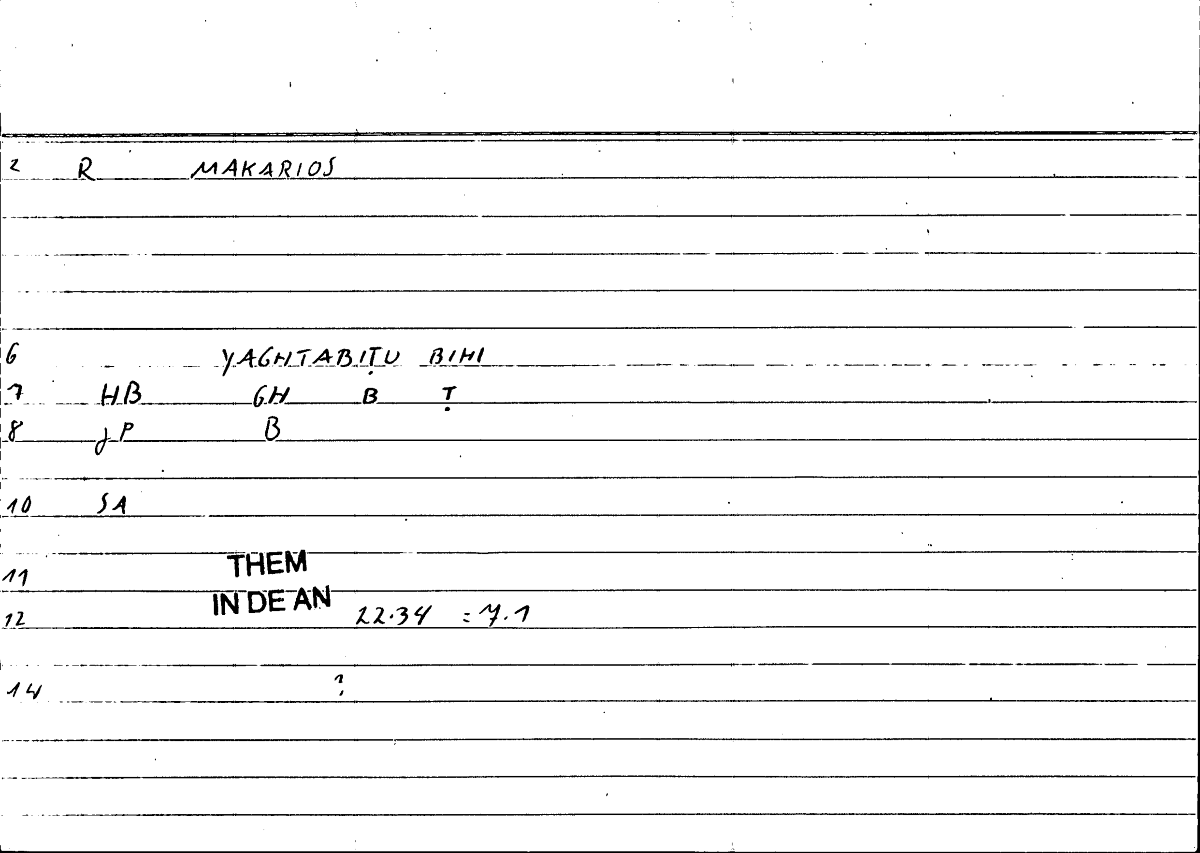 2 R MAKARIOS
6 YAGHTABIṬU BIHI
7 HB GH B Ṭ
8 JP B
10 SA
THEM
11
IN DE AN
12 22.34 = 7.1
14 ?